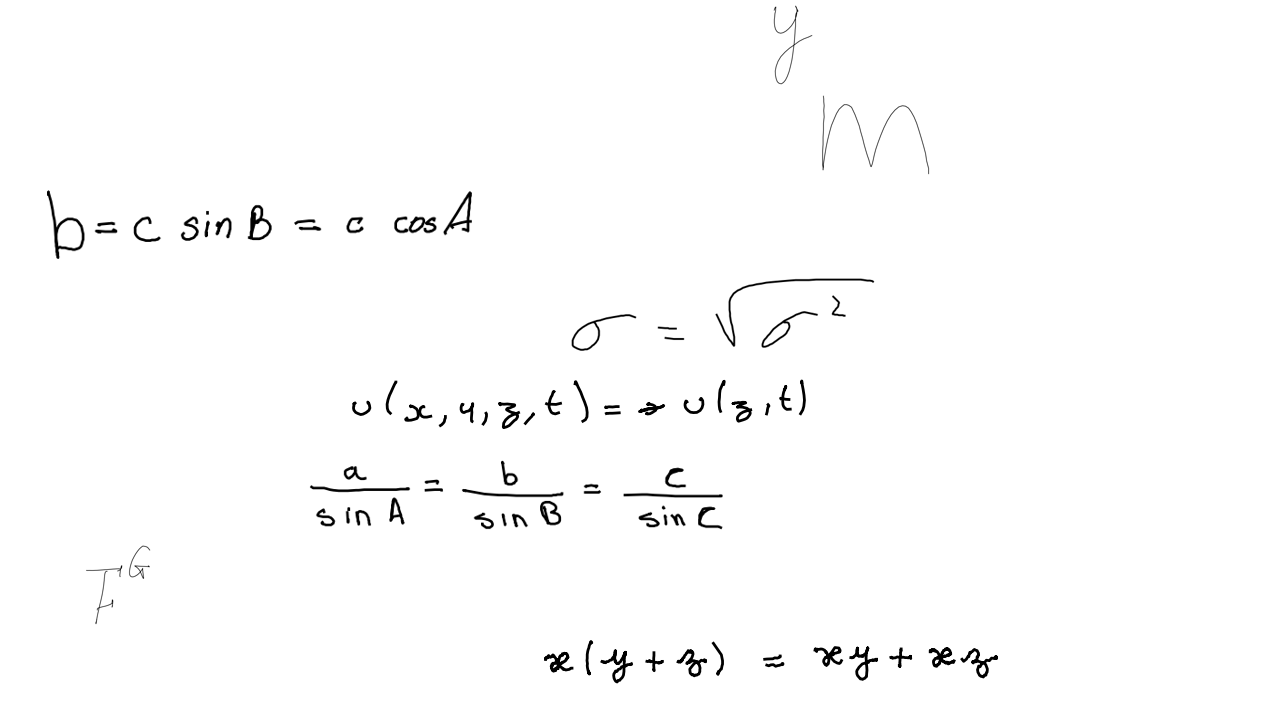 y
m
b = c sin B = c cos A
σ = √σ²
u(x, y, z, t) = → u(z, t)
a/sin A = b/sin B = c/sin C
F^G
x(y + z) = xy + xz